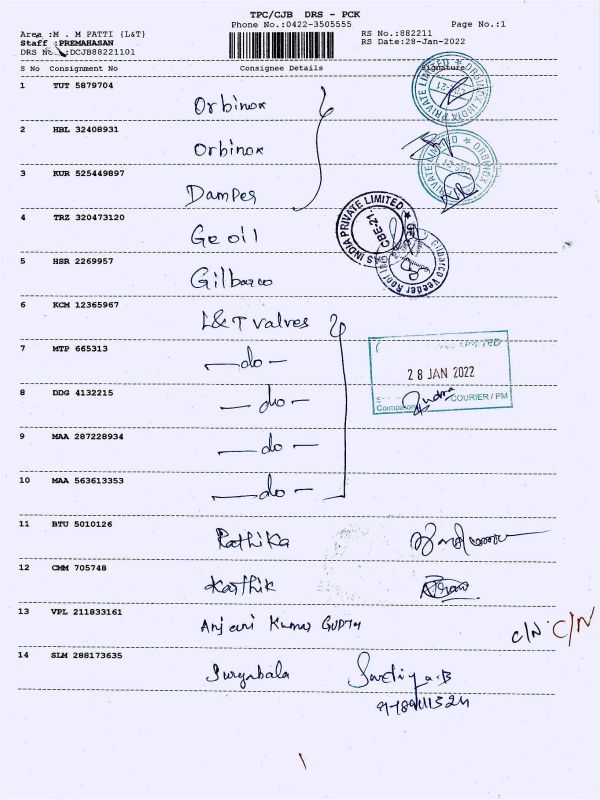 TPC/CJB DRS - PCK
Phone No.:0422-3505555 Page No.:1
Area :M . M PATTI {L&T} RS No.:882211
Staff :PREMAHASAN RS Date:28-Jan-2022
DRS No. :DCJB88221101
S No Consignment No Consignee Details Signature
1 TUT 5879704 Orbinox
2 HBL 32408931 Orbinox
3 KUR 525449897 Damper
4 TRZ 320473120 Ge oil
5 HSR 2269957 Gilbarco
6 KCM 12365967 L&T valves
7 MTP 665313 —do—
8 DDG 4132215 —do—
9 MAA 287228934 —do—
10 MAA 563613353 —do—
11 BTU 5010126 Rathika
12 CMM 705748 Karthik
13 VPL 211833161 Anjani Kumar GUPTA C/N C/N
14 SLM 288173635 Suryabala
ORBINOX INDIA PRIVATE LIMITED
ORBINOX INDIA PRIVATE LIMITED
GAS INDIA PRIVATE LIMITED
CBE-21.
Gilbarco Veeder Root
28 JAN 2022
COURIER / PM